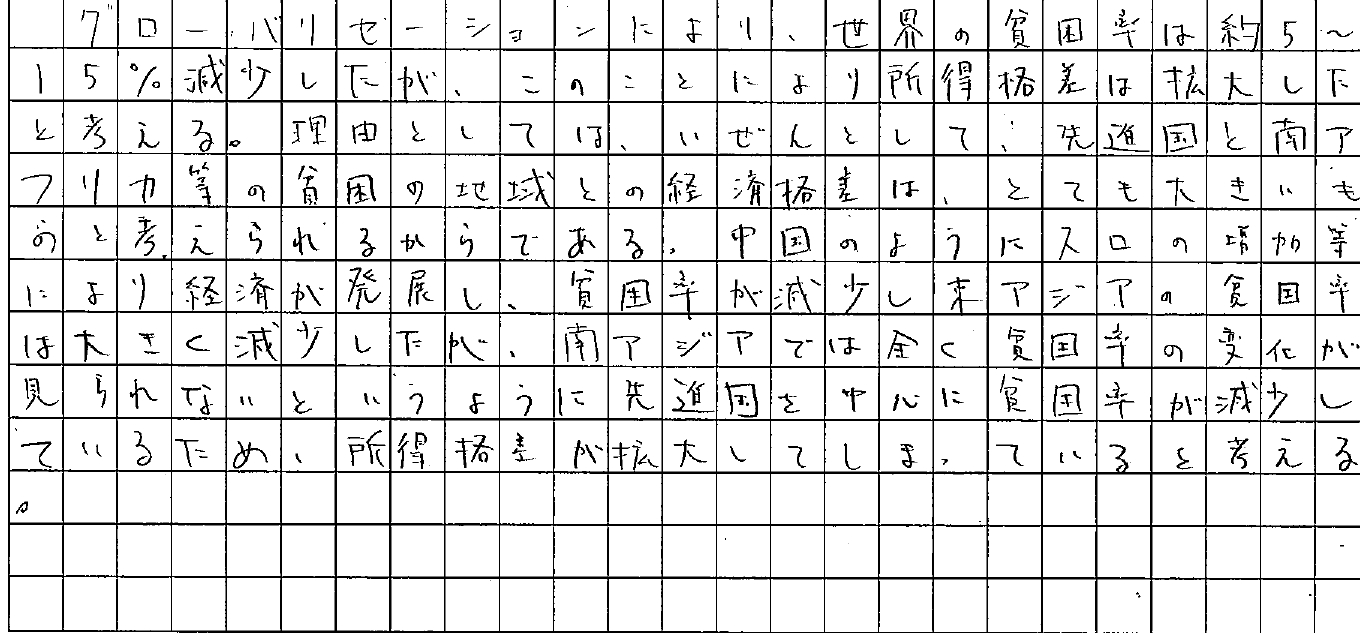 グローバリゼーションにより、世界の貧困率は約5～
15%減少したが、このことにより所得格差は拡大した
と考える。理由としては、いぜんとして、先進国と南ア
フリカ等の貧困の地域との経済格差は、とても大きいも
のと考えられるからである。中国のように人口の増加等
により経済が発展し、貧困率が減少し東アジアの貧困率
は大きく減少したが、南アジアでは全く貧困率の変化が
見られないというように先進国を中心に貧困率が減少し
ているため、所得格差が拡大してしまっていると考える
。